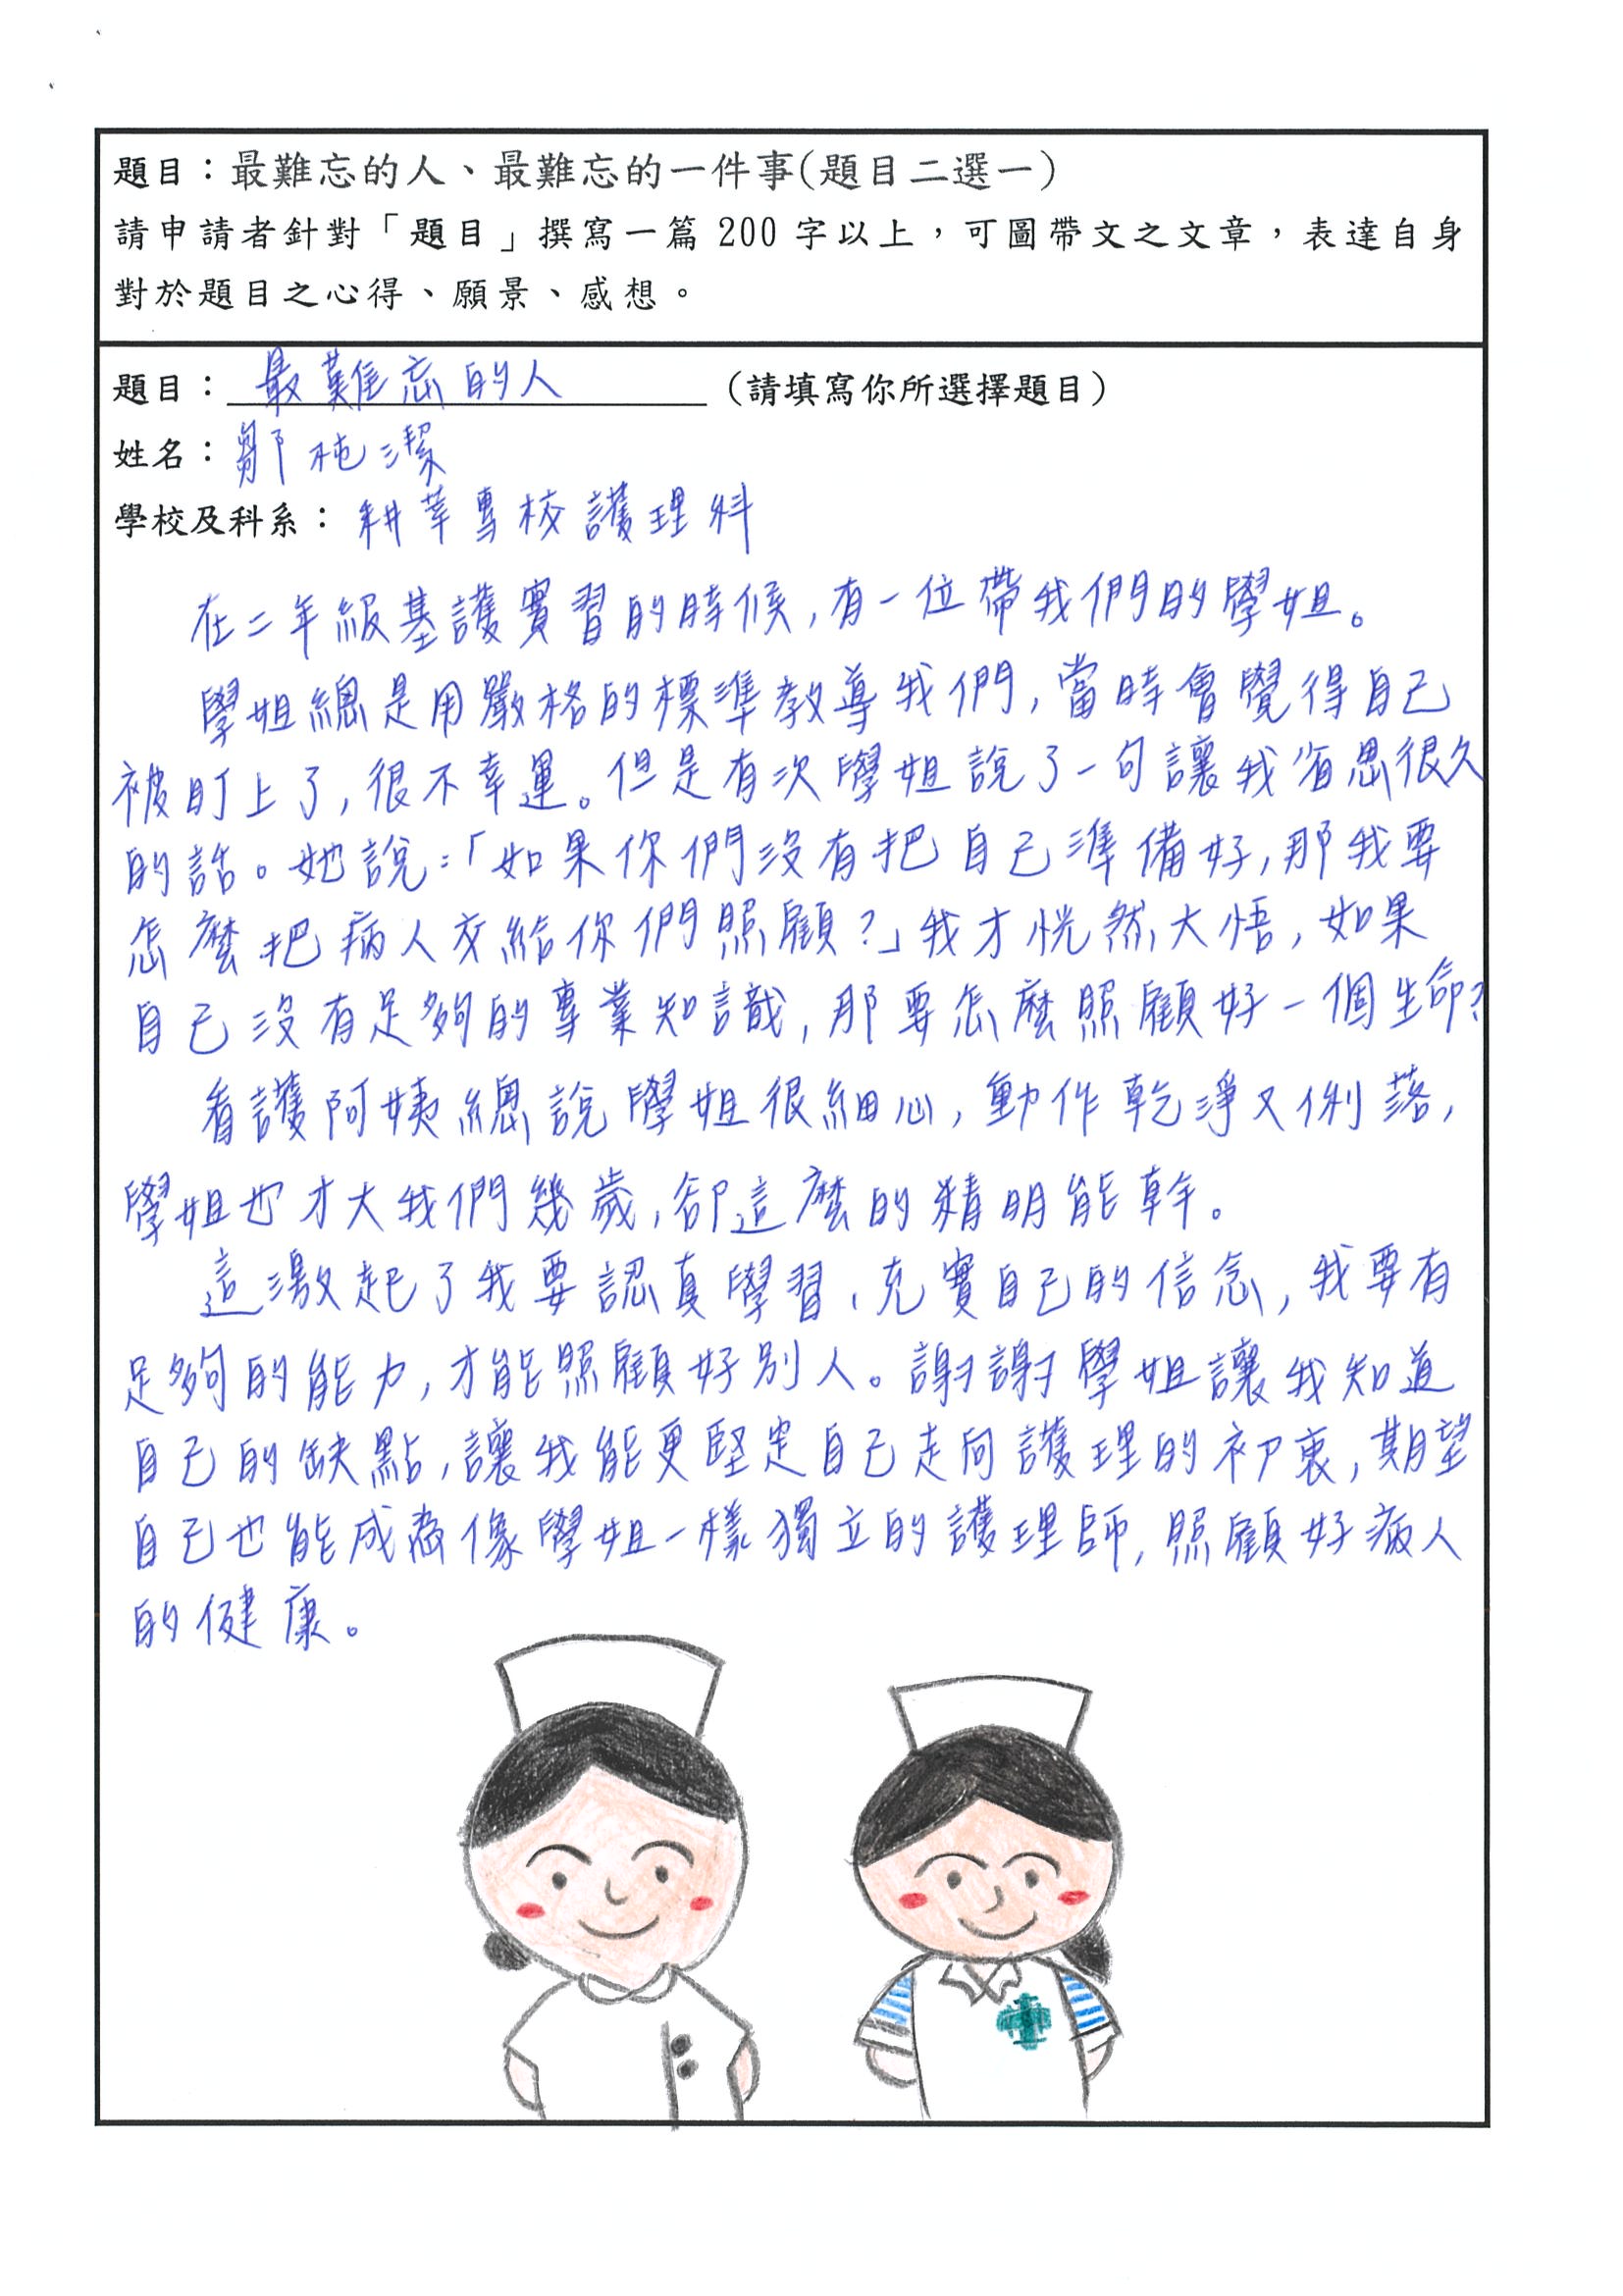 題目：最難忘的人、最難忘的一件事(題目二選一)
請申請者針對「題目」撰寫一篇 200 字以上，可圖帶文之文章，表達自身
對於題目之心得、願景、感想。
題目：最難忘的人（請填寫你所選擇題目）
姓名：鄒杶潔
學校及科系：耕莘專校護理科
在二年級基護實習的時候,有一位帶我們的學姐。
學姐總是用嚴格的標準教導我們,當時會覺得自己
被盯上了,很不幸運。但是有次學姐說了一句讓我省思很久
的話。她說:「如果你們沒有把自己準備好,那我要
怎麼把病人交給你們照顧?」我才恍然大悟,如果
自己沒有足夠的專業知識,那要怎麼照顧好一個生命?
看護阿姨總說學姐很細心,動作乾淨又俐落,
學姐也才大我們幾歲,卻這麼的精明能幹。
這激起了我要認真學習、充實自己的信念,我要有
足夠的能力,才能照顧好別人。謝謝學姐讓我知道
自己的缺點,讓我能更堅定自己走向護理的初衷,期望
自己也能成為像學姐一樣獨立的護理師,照顧好病人
的健康。